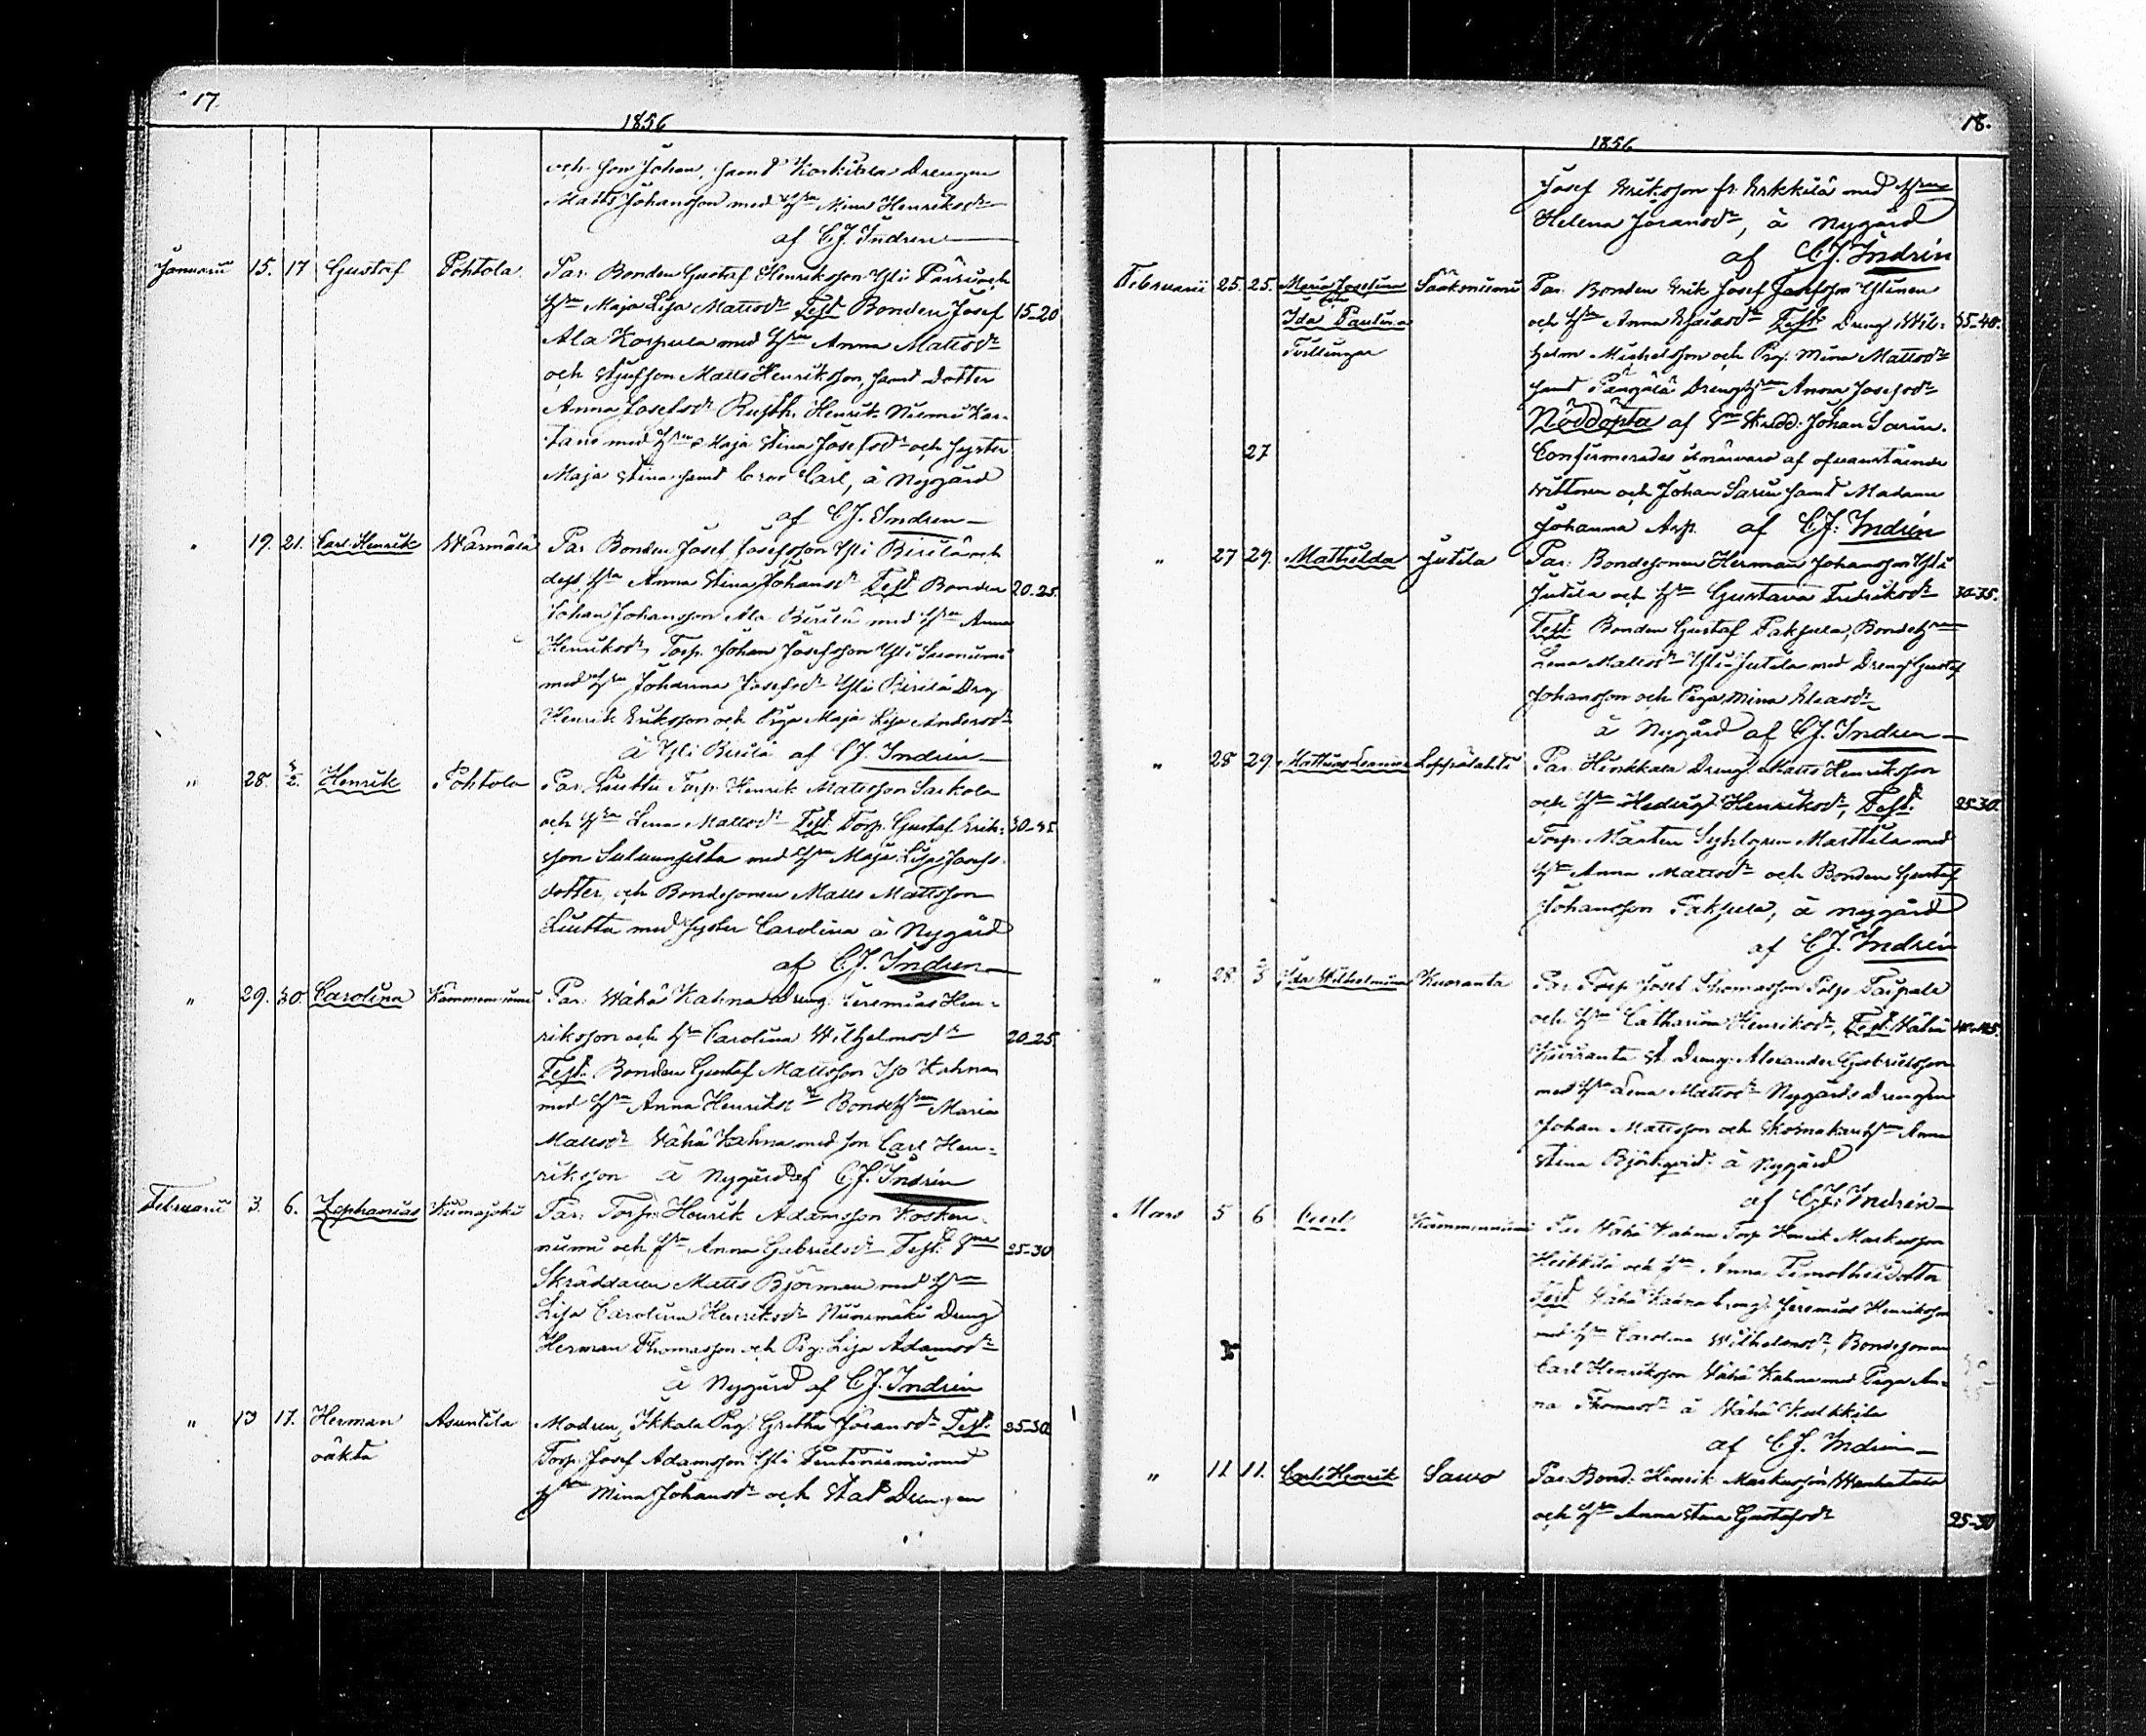 17
1856
och son Johan, samt Korkikers Drengen
Matts Johansson med Hru Mina Henriksdr
af C.J. Indren
Januarii 15. 17 Gustaf Pohtola Par. Bonden Gustaf Henriksson Yli Pärri och
Hru Maja Lisa Mattsdr Test. Bonden Josef 15-20
Ala Korpula med Hru Anna Mattsdr
och Styfson Matts Henriksson, samt dotter
Anna Josefsdr Rusth. Henrik Niemi Kar-
tano med Hru Maja Stina Josefsdr och syster
Maja Stina samt bror Carl, å Nygård
af C.J. Indren
" 19. 21. Carl Henrik Wärmälä Par. Bonden Josef Josefsson Yli Birilä och
dess Hru Anna Stina Johansdr Test. Bonden 20-25.
Johan Johansson Ala Birilä med Hru Anna
Henriksdr, Torp. Johan Josefsson Yli
med Hru Johanna Josefsdr Yli Birilä Drg
Henrik Eriksson och Piga Maja Lisa Andersdr
å Yli Birilä af C.J. Indrén
" 28. 3/2. Henrik Pohtola Par. Liuttu Torp. Henrik Mattsson Sarkola
och Hru Lena Mattsdr Test. Torp. Gustaf Eriks- 30-35.
son med Hru Maja Lisa Josefs-
dotter, och Bondesonen Matts Mattsson
Liuttu med syster Carolina å Nygård
af C.J. Indren
" 29. 30. Carolina Kämmenniemi Par. Wähä Kahna Dreng Jeremias Hen-
riksson och Hru Carolina Wilhelmsdr 20-25
Test. Bonden Gustaf Mattsson Iso Kahna
med Hru Anna Henriksdr Bondehru Maria
Mattsdr Wähä Kahna med son Carl Hen-
riksson å Nygård af C.J. Indrén
Februarii 3. 6. Zephanias Kumajoki Par. Torp. Henrik Adamsson Kosken-
niemi och Hru Anna Gabrielsdr Test. 25-30
Skräddaren Matts Björman med Hru
Lisa Carolina Henriksdr Nurmäki Dreng
Herman Thomasson och Pig. Lisa Adamsdr
å Nygård af C.J. Indrén
" 13 17. Herman Asuntila Modren, Ikkala Pig. Gretha Göransdr Test. 25-30
oäkta Torp. Josef Adamsson Yli Penti niemi med
Hru Mina Johansdr och Stat Drengen
18.
1856
Josef Eriksson fr. Erkkilä med Hru
Helena Göransdr, å Nygård
af C.J. Indrén
Februarii 25. 25. Maria Josefina Sääksniemi Par. Bonden Erik Josef Josefsson Ylinen
Ida Paulina och Hru Anna Esaiasdr Test. Dreng Wil- 35-40.
Tvillingar helm Michelsson och Pig. Mina Mattsdr
samt Pangälä Dreng Hru Anna Josefsdr
Nöddöpta af Skrädd. Johan Sarin.
27 Confirmerades i närvaro af ofvanstående
vittnen och Johan Sarin samt Madame
Johanna Asp. af C.J. Indrén
" 27 29. Mathilda Jutila Par. Bondesonen Herman Johansson Yli
Jutila och Hru Gustava Fredriksdr 30-35.
Test. Bonden Gustaf Paksula, Bondehru
Lena Mattsdr Yli Jutila med Dreng Gustaf
Johansson och Piga Mina
å Nygård af C.J. Indren
" 28 29. Mathias Leppälahti Par. Hinkkala Dreng Matts Henriksson
och Hru Hedvig Henriksdr, Test. 25-30.
Torp. Mårten Marttila med
Hru Anna Mattsdr och Bonden Gustaf
Johansson Paksula, å Nygård
af C.J. Indrén
" 28. Ida Wilhelmina Kuoranta Par. Torp. Josef Thomasson
och Hru Catharina Henriksdr, Test. Wähä 40-45.
Dreng Alexander Gabrielsson
med Hru Lena Mattsdr Nygårds drengen
Johan Mattsson och Skomakare Hru Anna
Stina Björkqvist å Nygård
af C.J. Indrén
Mars 5 6 Carl Kämmenniemi Par. Wähä Kahna Torp. Henrik Markusson
Heikkilä och Hru Anna Timotheidotter
Test. Wähä Kahna Dreng Jeremias Henriksson
med Hru Carolina Wilhelmsdr, Bondesonen
Carl Henriksson Wähä Kahna med Piga An-
na Thomasdr å Wähä
af C.J. Indrén
" 11 11. Carl Henrik Sawo Par. Bond. Henrik Markusson Wanhatalo
och Hru Anna Stina Gustafsdr 25-30